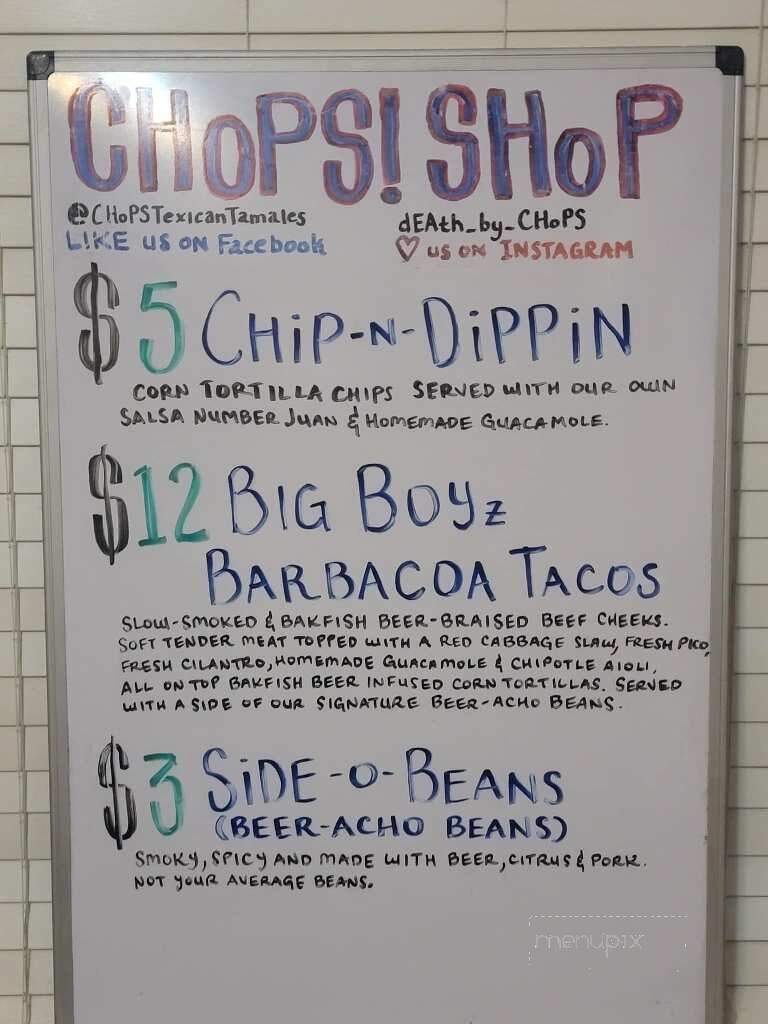 CHoPS! SHoP
@CHoPSTexicanTamales
dEAth_by_CHoPS
L!KE US ON Facebook
♡ US ON INSTAGRAM
$5 CHiP-N-DiPPiN
CORN TORTILLA CHIPS SERVED WITH OUR OWN
SALSA NUMBER JUAN & HOMEMADE GUACAMOLE.
$12 BIG BOYz
BARBACOA TACOS
SLOW-SMOKED & BAKFISH BEER-BRAISED BEEF CHEEKS.
SOFT TENDER MEAT TOPPED WITH A RED CABBAGE SLAW, FRESH PICO,
FRESH CILANTRO, HOMEMADE GUACAMOLE & CHIPOTLE AIOLI,
ALL ON TOP BAKFISH BEER INFUSED CORN TORTILLAS. SERVED
WITH A SIDE OF OUR SIGNATURE BEER-ACHO BEANS.
$3 SiDE-O-BEANS
(BEER-ACHO BEANS)
SMOKY, SPICY AND MADE WITH BEER, CITRUS & PORK.
NOT YOUR AVERAGE BEANS.
menupix